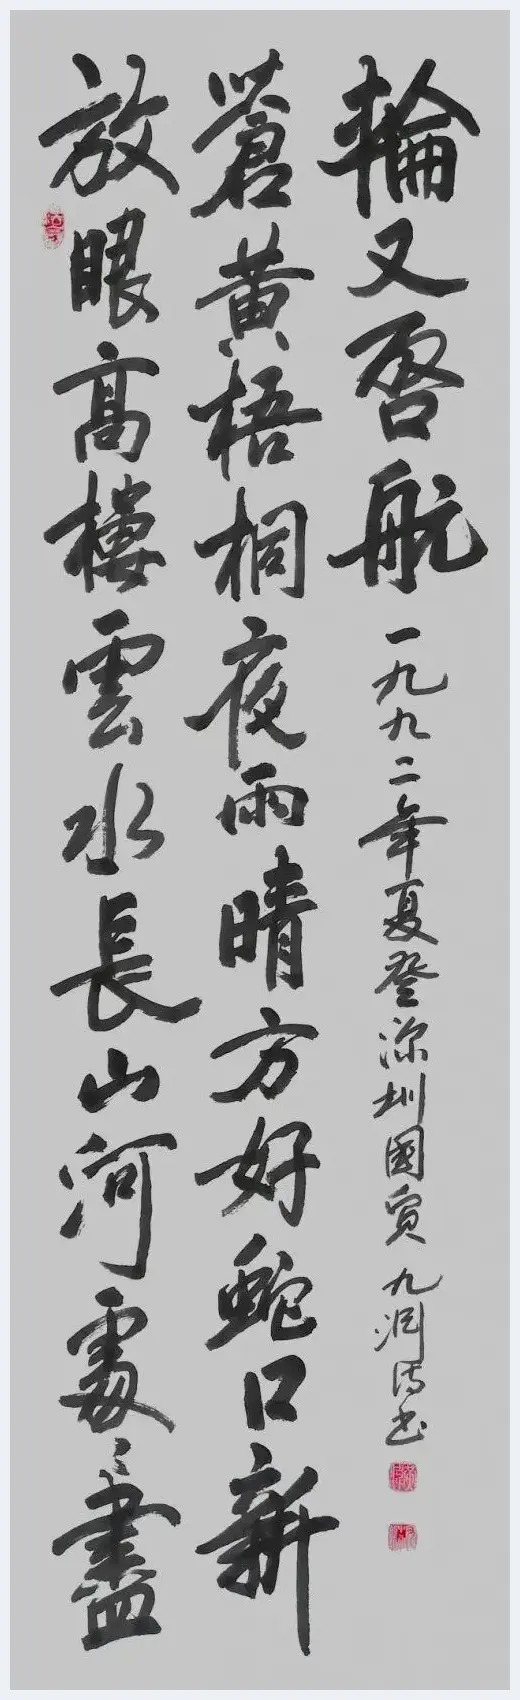 放眼高樓雲水長山河處〻盡
蒼黃梧桐夜雨晴方好蛇口新
輪又啓航
一九九二年夏登深圳國貿 九 书